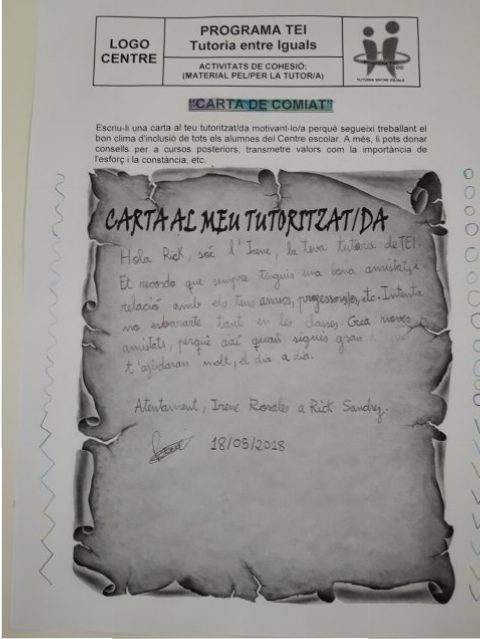 LOGO
CENTRE
PROGRAMA TEI
Tutoria entre Iguals
ACTIVITATS DE COHESIÓ:
(MATERIAL PEL/PER LA TUTOR/A)
TUTORIA ENTRE IGUALS
"CARTA DE COMIAT"
Escriu-li una carta al teu tutoritzat/da motivant-lo/a perquè segueixi treballant el
bon clima d'inclusió de tots els alumnes del Centre escolar. A més, li pots donar
consells per a cursos posteriors, transmetre valors com la importància de
l'esforç i la constància, etc.
CARTA AL MEU TUTORITZAT/DA
Hola Rick, sóc l'Irene, la teva tutora de TEI.
Et recordo que sempre tinguis una bona amistat, i
relació amb els teus amics, professors/es, etc. Intenta
no esbararte tant en les classes. Crea noves
amistats, perquè així quan siguis gran
t'ajudaran molt, el dia a dia.
Atentament, Irene Rosales a Rick Sandrez.
18/05/2018